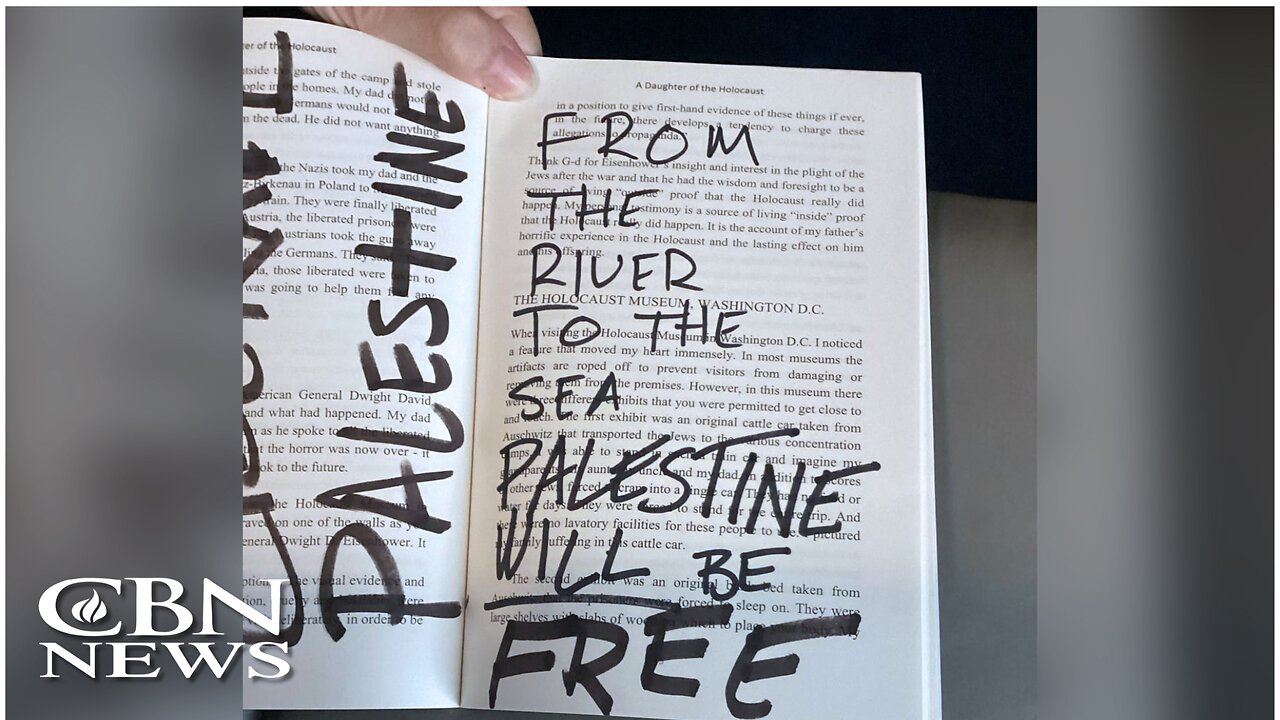 er of the Holocaust
tside the gates of the camp and stole
ople in the homes. My dad did not
ermans would not
n the dead. He did not want anything
the Nazis took my dad and the
z-Birkenau in Poland to
rain. They were finally liberated
Austria, the liberated prisoners were
Austrians took the guns away
the Germans. They
ia, those liberated were taken to
was going to help them for any
erican General Dwight David
and what had happened. My dad
n as he spoke to the liberated
that the horror was now over - it
ook to the future.
the
raved on one of the walls as
eneral Dwight D. Eisenhower. It
the visual evidence and
were
in order to be
PALESTINE
A Daughter of the Holocaust
in a position to give first-hand evidence of these things if ever,
in the future, there develops a tendency to charge these
allegations to propaganda.
Thank G-d for Eisenhower's insight and interest in the plight of the
Jews after the war and that he had the wisdom and foresight to be a
source of living "outside" proof that the Holocaust really did
happen. My personal testimony is a source of living "inside" proof
that the Holocaust really did happen. It is the account of my father's
horrific experience in the Holocaust and the lasting effect on him
and his offspring.
THE HOLOCAUST MUSEUM, WASHINGTON D.C.
When visiting the Holocaust Museum in Washington D.C. I noticed
a feature that moved my heart immensely. In most museums the
artifacts are roped off to prevent visitors from damaging or
removing them from the premises. However, in this museum there
were three different exhibits that you were permitted to get close to
and touch. The first exhibit was an original cattle car taken from
Auschwitz that transported the Jews to the various concentration
camps. I was able to stand in such a train car and imagine my
grandparents, aunts, uncles and my dad, in addition to scores
of other Jews forced to cram into a single car. They had no food or
water for days. They were forced to stand for the entire trip. And
there were no lavatory facilities for these people to use. I pictured
my family suffering in this cattle car.
The second exhibit was an original bunk bed taken from
Auschwitz that the prisoners were forced to sleep on. They were
large shelves with slabs of wood on which to place your body. My
FROM
THE
RIVER
TO THE
SEA
PALESTINE
WILL BE
FREE
CBN
NEWS